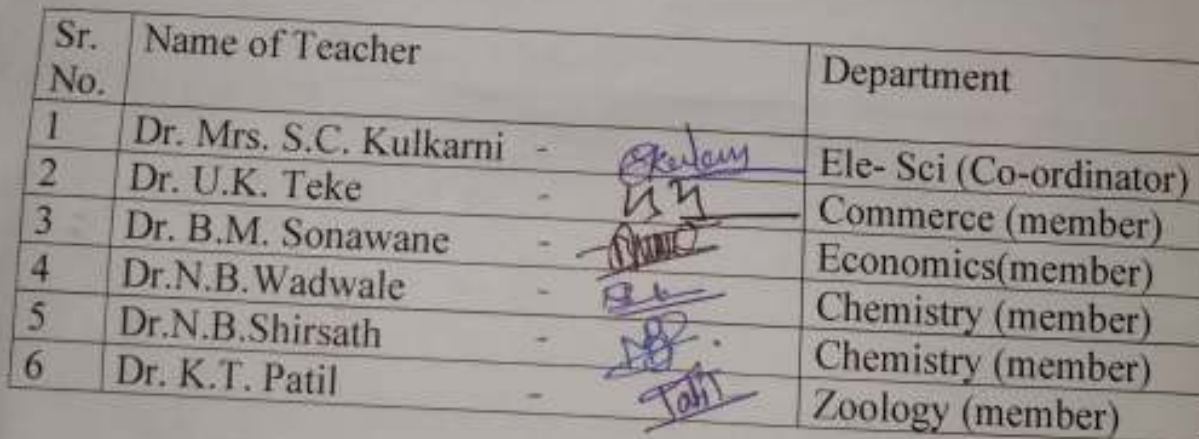 Sr. No. Name of Teacher Department
1 Dr. Mrs. S.C. Kulkarni - Ele- Sci (Co-ordinator)
2 Dr. U.K. Teke - Commerce (member)
3 Dr. B.M. Sonawane - Economics(member)
4 Dr.N.B.Wadwale - Chemistry (member)
5 Dr.N.B.Shirsath - Chemistry (member)
6 Dr. K.T. Patil - Zoology (member)